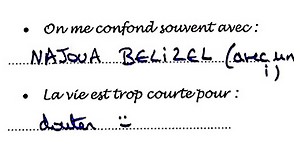 • On me confond souvent avec :
NAJOUA BELIZEL (avec un i)
• La vie est trop courte pour :
douter :)